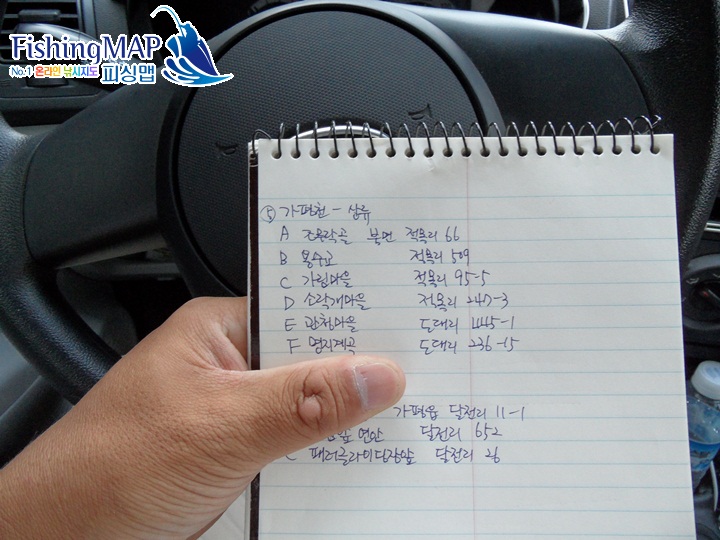 FishingMAP
No.1 온라인 낚시지도 피싱맵
⑤ 가평천 - 상류
A 조무락골 북면 적목리 66
B 용수교 적목리 509
C 가림마을 적목리 95-5
D 소락개마을 적목리 240-3
E 관청마을 도대리 445-1
F 명지계곡 도대리 236-15
가평읍 달전리 11-1
앞 연안 달전리 652
C 패러글라이딩장앞 달전리 26